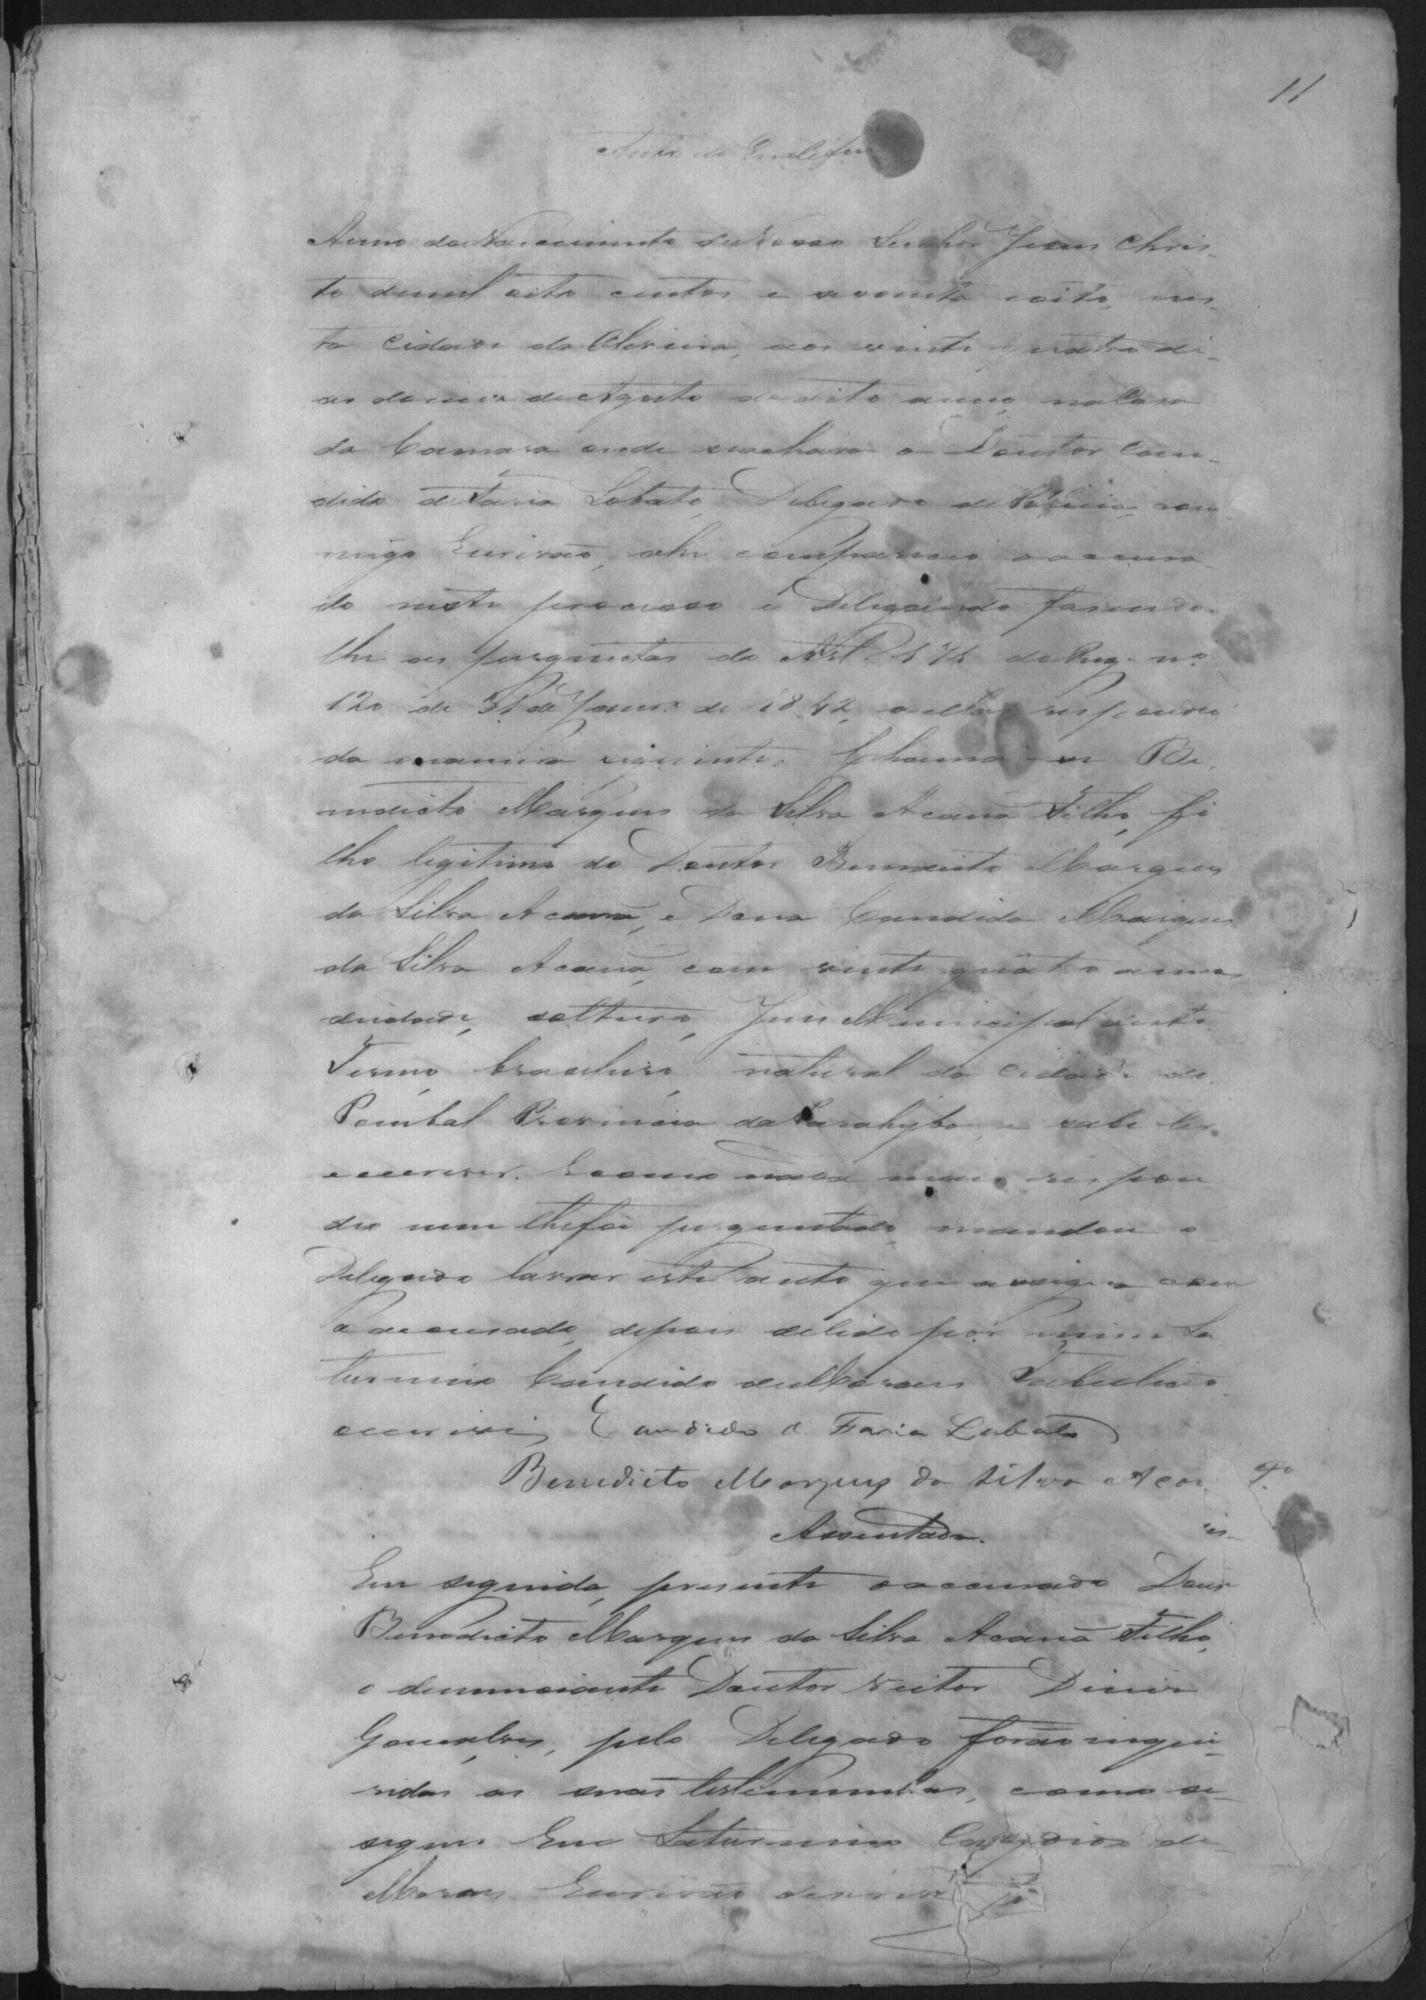 11
Auto de Qualifica
Anno do Nascimento de Nosso Senhor Jesus Chris-
to de mil oito centos e secenta e oito, nes-
ta Cidade da Oliveira, aos vinte quatro di-
as do mes de Agosto do dito anno, na Casa
da Camara onde se achava o Doutor Can-
dido de Faria Lobato, Delegado de Policia, com
migo Escrivão, ahi compareceo o accusa-
do neste processo e Delegado fasendo-
lhe as perguntas do Art. 171 do Reg. nº
120 de 31 de Janrº de 1842, a ellas respondeo
da maneira seguinte. Chama-se Be-
nedicto Marques da Silva Acauã Filho, fi
lho legitimo do Doutor Benedicto Marques
da Silva Acauã, e Dona Candida Marques
da Silva Acauã, com vinte quatro annos
de idade, solteiro, Juiz Municipal deste
Termo, brasileiro, natural da Cidade de
Pombal Provincia da Parahyba, e sabe ler
e escrever. E como nada mais respon
deo nem lhe foi perguntado, mandou o
Delegado lavrar este auto que assigna com
o accusado, depois de lido por mim Sa
turnino Candido de Moraes Tabellião
escrevi, Candido de Faria Lobato
Benedicto Marques da Silva Acau Fº
Assentada.
Em seguida, presente o accusado Dour
Benedicto Marques da Silva Acauã Filho,
o denunciante Doutor Diniz
Gonçalves, pelo Delegado forão inque-
ridas as suas testemunhas, como se
segue Eu Saturnino Candido de
Moraes Escrivão escrevi